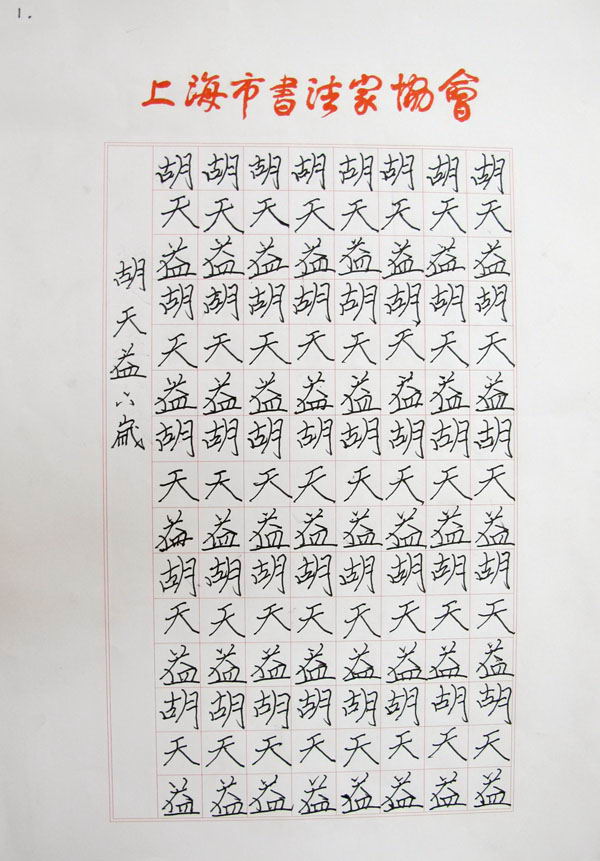 1.
上海市書法家協會
胡天益胡天益胡天益胡天益胡天益
胡天益胡天益胡天益胡天益胡天益
胡天益胡天益胡天益胡天益胡天益
胡天益胡天益胡天益胡天益胡天益
胡天益胡天益胡天益胡天益胡天益
胡天益胡天益胡天益胡天益胡天益
胡天益胡天益胡天益胡天益胡天益
胡天益胡天益胡天益胡天益胡天益
胡天益六歲